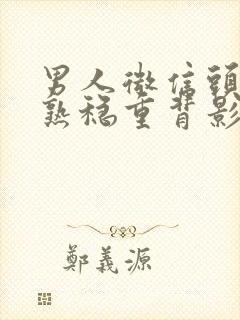 男人微信頭
熟穩重背影
鄭義源